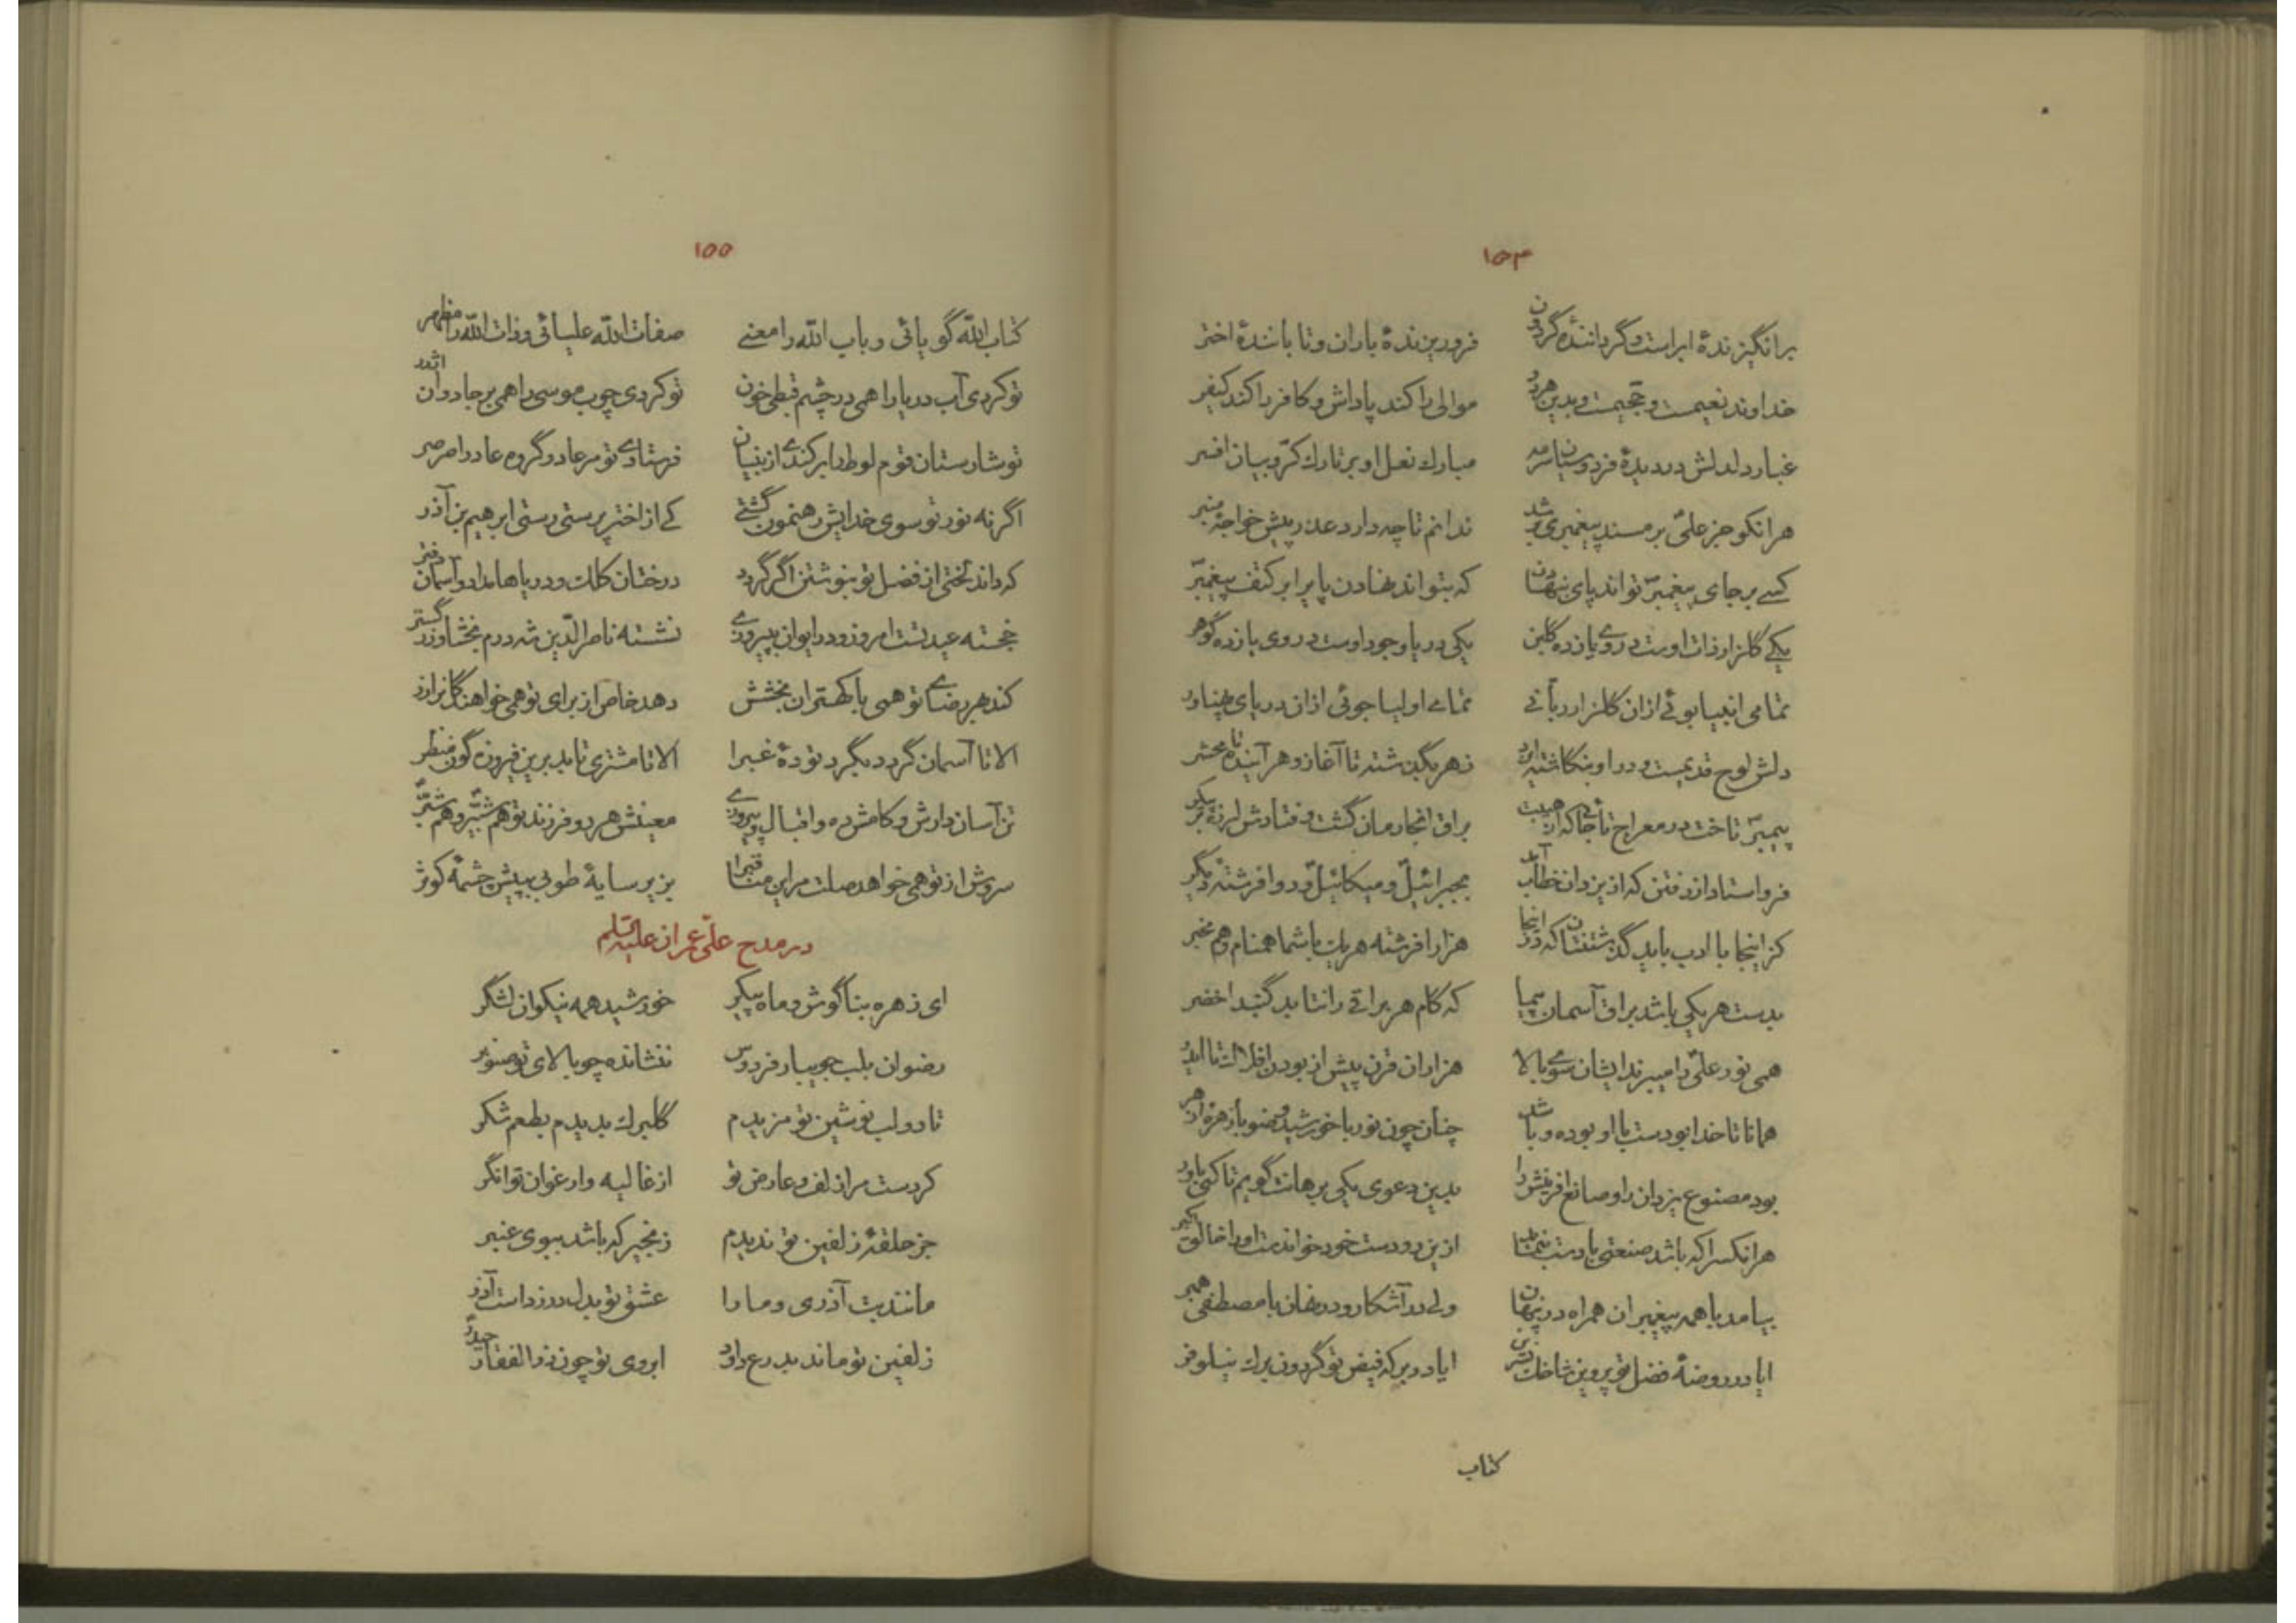 ۱۵۴
برانگیزندهٔ ابراست و گردانندهٔ گردون فروریزندهٔ باران و تابانندهٔ اختر
خداوند نعیمست و جحیمست و بدین هردو موالی را کند پاداش و کافر را کند کیفر
غبار دلدلش در دیدهٔ فردوسیان سرمه مبارك نعل او بر تارك کرّوبیان افسر
هرانکو جز علیّ بر مسند پیغمبری بر شد ندانم تا چه دارد عذر پیش خواجهٔ منبر
کسے بر جای پیغمبرّ تواند پای بنهادن که بتواند نهادن پا برابر کتف پیغمبرّ
یکے گلزار ذات اوست در وے یازده گلبن یکی دریا وجود اوست در وی یازده گوهر
تمامی انبیا بوئے ازان گلزار ربّانے تمامے اولیا جوئی ازان دریای پهناور
دلش لوح قدیمست و در او بنگاشته ایزد زهر بگذشته تا آغاز و هر آینده تا محشر
پیمبرّ تاخت در معراج تا جائے که از هیبت براق انجا رمان گشت و فتادش لرزه بر پیکر
فرو استاد از رفتن که از یزدان خطاب آمد بجبرائیلّ و میکائیلّ و دو افرشتهٔ دیگر
کز اینجا با ادب باید گذشتنتان که در اینجا هزار افرشته هریك با شما همنام و هم مخبر
بدست هریکی باشد براق آسمان پیما که گام هر براقے را نتابد گنبد اخضر
همی نور علیّ را میبرند ایشان سوے بالا هزاران قرن پیش از بودن افلاك تا ایدر
همانا تا خدا بودست با او بوده و باشد چنان چون نور با خورشید و ضو با زهرهٔ ازهر
بود مصنوع یزدان را و صانع افرینش را بدین دعوی یکی برهانت گویم تا کنی باور
هرانکسرا که باشد صنعتی با دست بنماید ازین رو دست خود خواندست او را خالق اکبر
بیامد با همه پیغمبران همراه در پنهان ولی در آشکار و در نهان با مصطفیّ همبر
ایا در روضهٔ فضل تو پروین شاخك نسرین ایا در برکهٔ فیض تو گردون برك نیلوفر
کتاب
۱۵۵
کتاب الله گویائی و باب الله را معنے صفات الله علیائی و ذات الله را مظهر
تو کردی آب دریا را همی در چشم قبطی خون تو کردی چوب موسی را همی بر جادوان اژدر
تو شارستان قوم لوط را برکندے از بنیان فرستادے تو مر عاد و گروه عاد را صرصر
اگر نه نور تو سوی خدایش رهنمون گشتے کے از اختر پرستی رستی ابرهیم بن آذر
که داند لختی از فضل تو بنوشتن اگر گردد درختان کلك و دریاها مداد و آسمان دفتر
خجسته عید تست امروز و در ایوان پیروزے نشسته ناصرالدّین شه درم بخشا و زر گستر
کند بهر رضاے تو همی با کهتران بخشش دهد خاص از برای تو همی خواهندگانرا زر
الا تا آسمان گردد بگرد تودهٔ غبرا الا تا مشتری تابد برین فیروزه گون منظر
تن آسان دارش و کامش ده و اقبال و پیروزے معینش هر دو فرزند تو هم شبّیرّ و هم شبّرّ
سروش از تو همی خواهد صلت مر این مناقب را بزیر سایهٔ طوبی بپیش چشمهٔ کوثر
در مدح علیّ عمران علیه السّلم
ای زهره بناگوش و ماه پیکر خورشید همه نیکوان لشگر
رضوان بلب جویبار فردوس ننشانده چو بالای تو صنوبر
تا دو لب نوشین تو مزیدم گلبرك بدیدم بطعم شکر
کردست مرا زلف و عارض تو از غالیه و ارغوان توانگر
جز حلقهٔ زلفین تو ندیدم زنجیر که باشد ببوی عنبر
مانند بت آذری و ما را عشق تو بدل در زداست آذر
زلفین تو ماند بدرع داود ابروی تو چون ذوالفقار حیدرّ